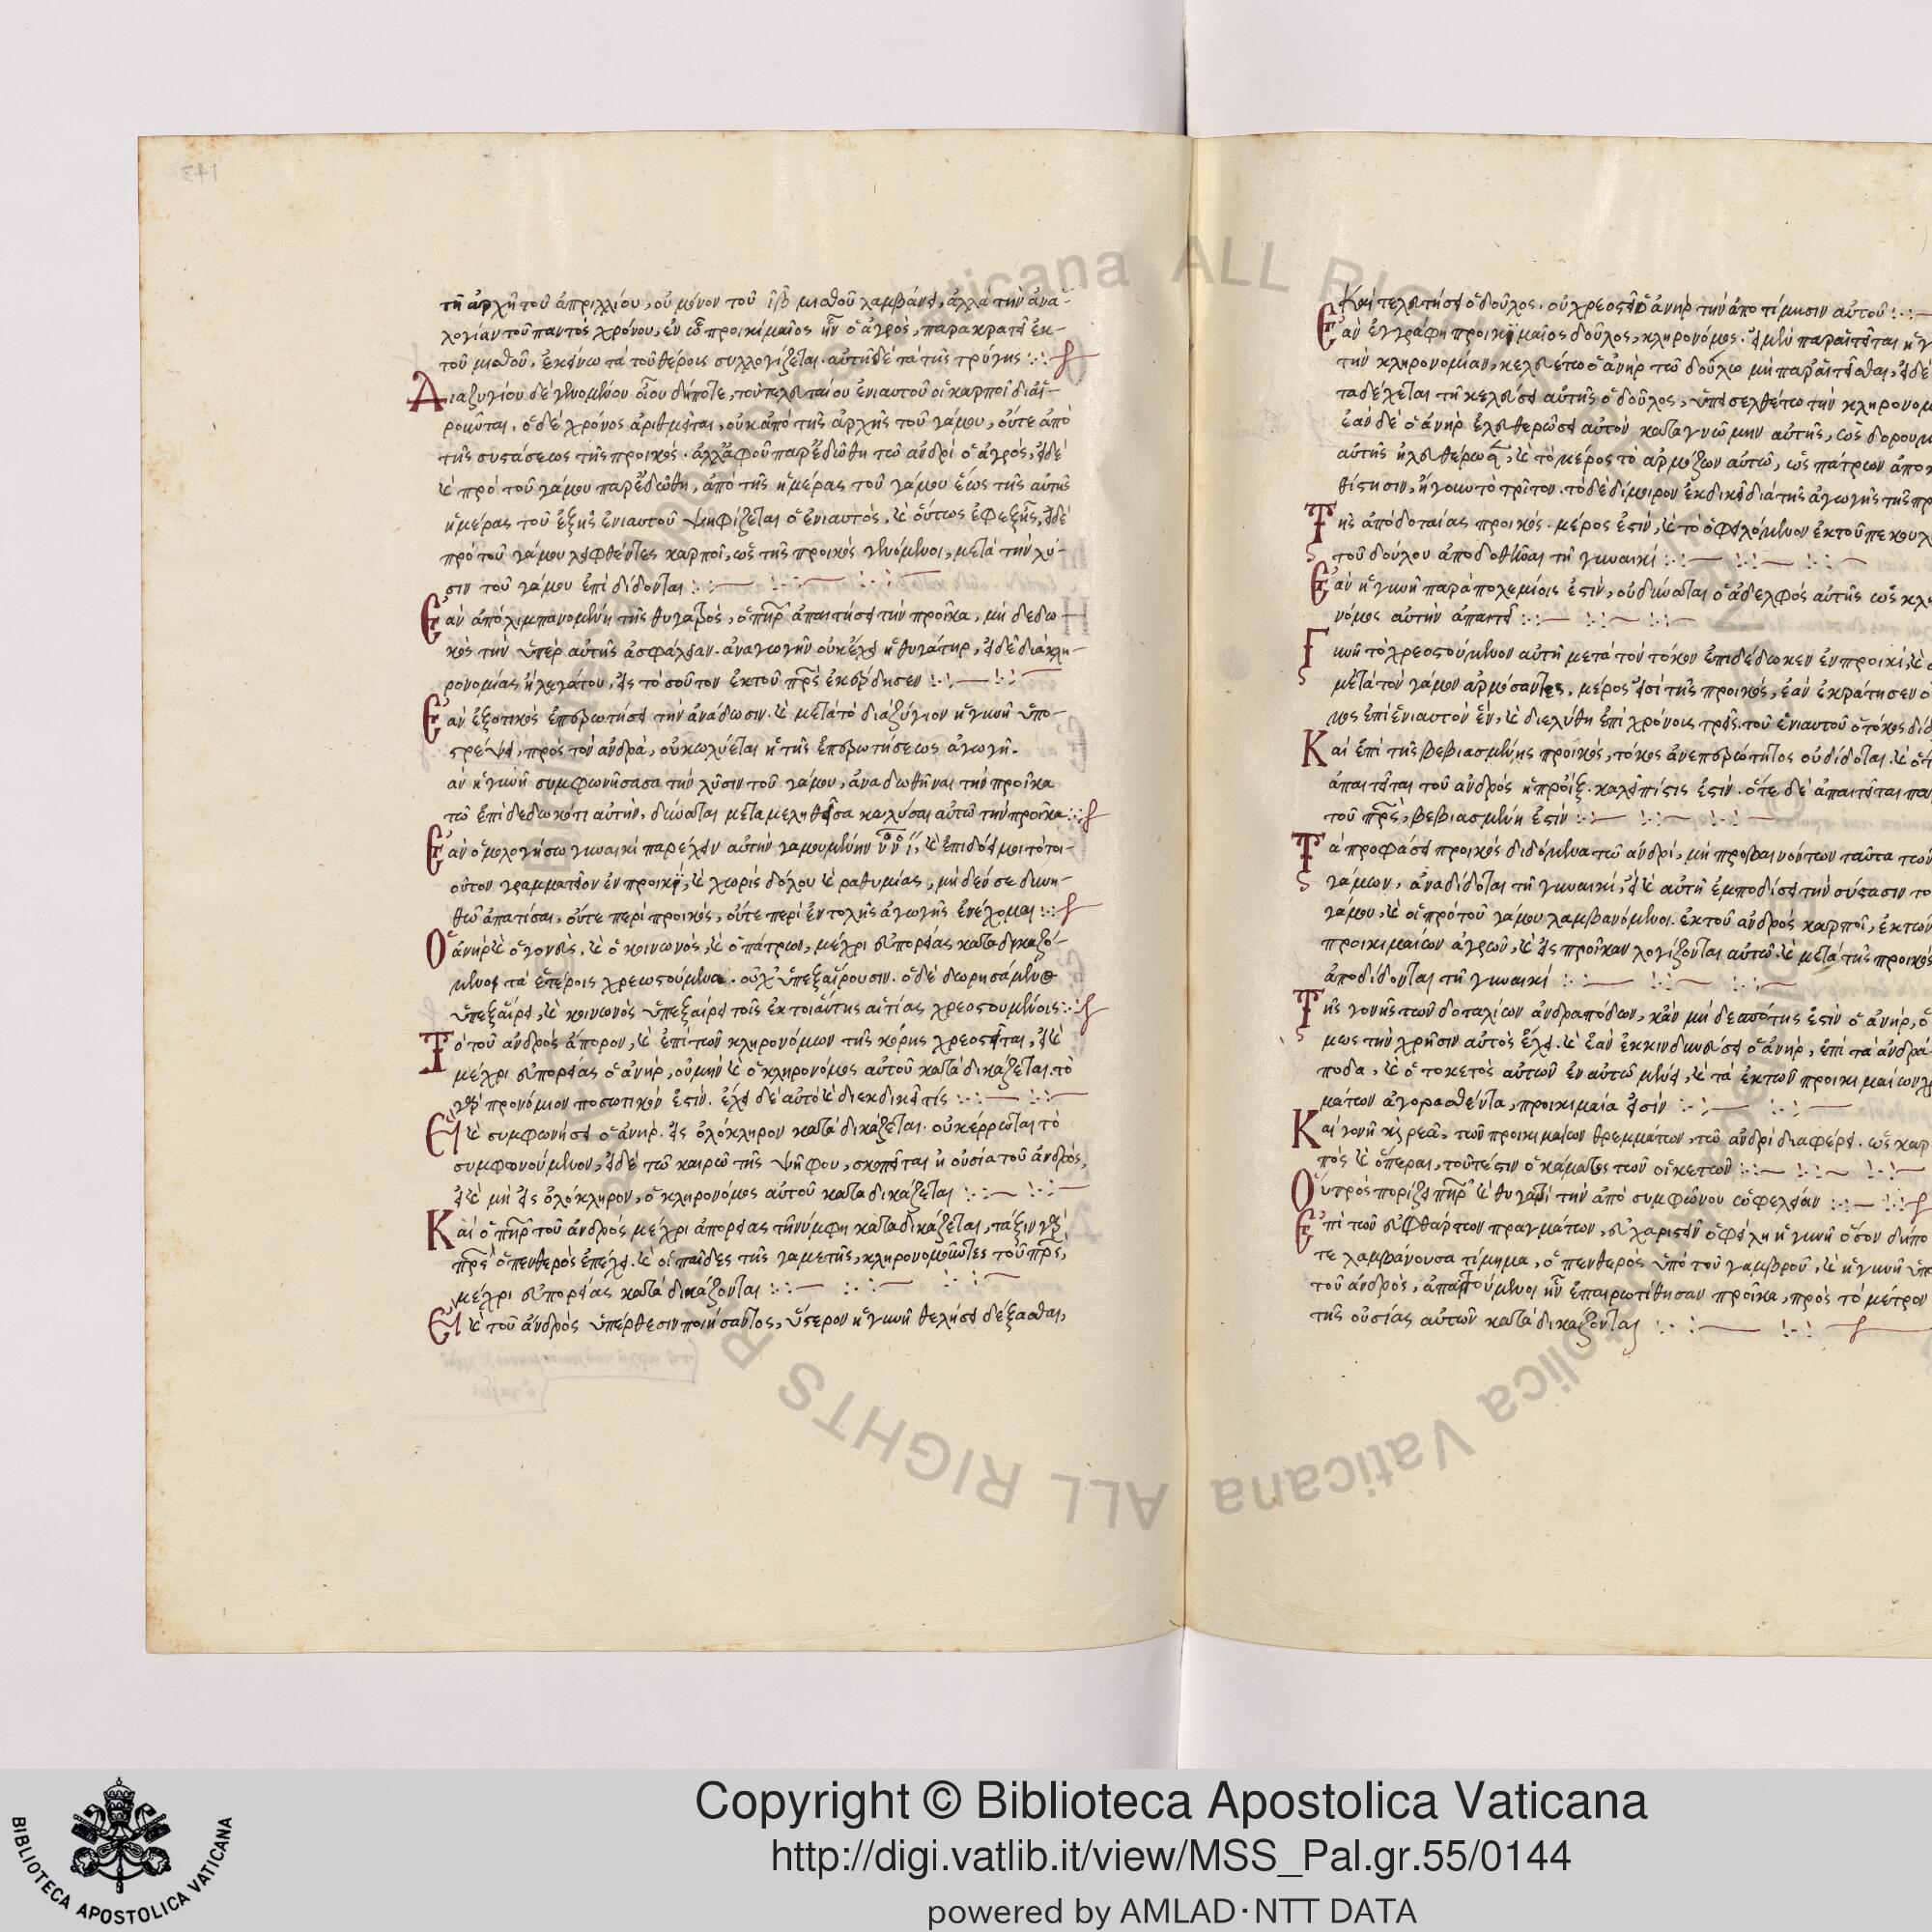 τῆ ἀρχῆ τοῦ ἀπριλλίου, οὐ μόνον τοῦ ιβ μισθοῦ λαμβάνει, ἀλλὰ τὴν ἀνα-
λογίαν τοῦ παντὸς χρόνου, ἐν ὧ προικιμαῖος ἦν ὁ ἀγρὸς, παρακρατεῖ ἐκ-
τοῦ μισθοῦ. ἐκείνω τὰ τοῦ θέρους συλλογίζεται. αὐτῆ δὲ τὰ τῆς τρύγης
Διαζυγίου δὲ γινομένου οἵου δήποτε, τοῦ τελευταίου ἐνιαυτοῦ οἱ καρποὶ διαι-
ροῦνται. ὁ δὲ χρόνος ἀριθμεῖται, οὐκ ἀπὸ τῆς ἀρχῆς τοῦ γάμου, οὔτε ἀπὸ
τῆς συστάσεως τῆς προικός. ἀλλ' ἀφοῦ παρεδώθη τῶ ἀνδρὶ ὁ ἀγρὸς, εἰ δὲ
καὶ πρὸ τοῦ γάμου παρεδώθη, ἀπὸ τῆς ἡμέρας τοῦ γάμου ἕως τῆς αὐτῆς
ἡμέρας τοῦ ἑξῆς ἐνιαυτοῦ ψηφίζεται ὁ ἐνιαυτὸς, καὶ οὕτως ἐφεξῆς, εἰ δὲ
πρὸ τοῦ γάμου ληφθέντες καρποὶ, ὡς τῆς προικὸς γινόμενοι, μετὰ τὴν λύ-
σιν τοῦ γάμου ἐπιδίδονται
Ἐὰν ἀπολιμπανομένη τῆς θυγατρὸς, ὁ πηρ ἀπαιτήσει τὴν προῖκα, μὴ δεδω
κὼς τὴν ὑπὲρ αὐτῆς ἀσφάλειαν. ἀναγωγὴν οὐκ ἔχει ἡ θυγάτηρ, εἰ δὲ διὰ κλη-
ρονομίας ἢ λεγάτου, εἰς τοσοῦτον ἐκ τοῦ πρς ἐκέρδησεν
Ἐὰν ἐξοτικὸς ἐπερωτήσει τὴν ἀνάδωσιν. καὶ μετὰ τὸ διαζύγιον ἡ γυνὴ ὑπο-
στρέψει, πρὸς τὸν ἄνδρα, οὐ κωλύεται ἡ τῆς ἐπερωτήσεως ἀγωγή.
αν ἡ γυνὴ συμφωνήσασα τὴν λῦσιν τοῦ γάμου, ἀναδωθῆναι τὴν προῖκα
τῶ ἐπιδεδωκότι αὐτὴν, δύναται μεταμεληθεῖσα κωλύσαι αὐτῶ τὴν προῖκα
Ἐὰν ὁμολογήσω γυναικὶ παρέχειν αὐτὴν γαμουμένην νν ι, καὶ ἐπιδόσει μοι τὸ τοι-
οῦτον γραμματεῖον ἐν προικὶ, καὶ χωρὶς δόλου καὶ ραθυμίας, μὴ δέν σε δυνη-
θῶ ἀπαιτίσαι, οὔτε περὶ προικὸς, οὔτε περὶ ἐντολῆς ἀγωγῆς ἐνέχομαι
Ὁ ἀνὴρ καὶ ὁ γονεὺς, καὶ ὁ κοινωνὸς, καὶ ὁ πάτρων, μέχρι εὐπορίας καταδικαζό-
μενοι τὰ ἑτέροις χρεωστούμενα. οὐχ ὑπεξαίρουσιν. ὁ δὲ δωρησάμενος
ὑπεξαίρει, καὶ κοινωνὸς ὑπεξαίρει τοῖς ἐκ τοιαύτης αἰτίας χρεοστουμένοις
Τὸ τοῦ ἀνδρὸς ἄπορον, καὶ ἐπὶ τῶν κληρονόμων τῆς κόρης χρεοστεῖται, εἰ καὶ
μέχρι εὐπορίας ὁ ἀνὴρ, οὐ μὴν καὶ ὁ κληρονόμος αὐτοῦ καταδικάζεται. τὸ
γὰρ προνόμιον ποσωτικόν ἐστιν. ἔχει δὲ αὐτὸ καὶ διεκδικεῖ τίς
Εἰ καὶ συμφωνήσει ὁ ἀνὴρ. εἰς ὁλόκληρον καταδικάζεται. οὐκ ἔρρωται τὸ
συμφωνούμενον, εἰ δὲ τῶ καιρῶ τῆς ψήφου, σκοπεῖται ἡ οὐσία τοῦ ἀνδρὸς,
εἰ καὶ μὴ εἰς ὁλόκληρον, ὁ κληρονόμος αὐτοῦ καταδικάζεται
Καὶ ὁ πηρ τοῦ ἀνδρὸς μέχρι ἀπορίας τῆ νύμφη καταδικάζεται, τάξιν γὰρ
πρς ὁ πενθερὸς ἐπέχει. καὶ οἱ παῖδες τῆς γαμετῆς, κληρονομοῦντες τοῦ πρς,
μέχρι εὐπορίας καταδικάζονται
Εἰ καὶ τοῦ ἀνδρὸς ὑπέρθεσιν ποιήσαντος, ὕστερον ἡ γυνὴ θελήσει δέξασθαι,
Καὶ τελευτήσει ὁ δοῦλος. οὐ χρεοστεῖ ὁ ἀνὴρ τὴν ἀποτίμησιν αὐτοῦ
Ἐὰν ἐγγράφη προικιμαῖος δοῦλος, κληρονόμος. εἰ μὲν παραιτεῖται ἡ γ
τὴν κληρονομίαν, κελευέτω ὁ ἀνὴρ τῶ δούλω μὴ παραιτεῖσθαι, εἰ δὲ
ταδέχεται τῆ κελεύσει αὐτῆς ὁ δοῦλος, ὑπεισελθέτω τὴν κληρονομ
ἐὰν δὲ ὁ ἀνὴρ ἐλευθερώσει αὐτὸν κατὰ γνώμην αὐτῆς, ὡς δορουμ
αὐτῆς ἠλευθέρωσε, καὶ τὸ μέρος τὸ ἁρμόζων αὐτῶ, ὡς πάτρων ἀποκ
θίστησιν, ἤγουν τὸ τρίτον. τὸ δὲ δίμοιρον ἐκδικεῖ διὰ τῆς ἀγωγῆς τῆς πρ
Τῆς ἀπὸ δοταίας προικός. μέρος ἐστὶν, καὶ τὸ ὀφειλόμενον ἐκ τοῦ πεκουλ
τοῦ δούλου ἀποδοθῆναι τῆ γυναικί
Ἐὰν ἡ γυνὴ παρὰ πολεμίοις ἐστὶν, οὐ δύναται ὁ ἀδελφὸς αὐτῆς ὡς κλη
νόμος αὐτὴν ἀπαιτεῖ
Γυνὴ τὸ χρεοστούμενον αὐτῆ μετὰ τὸν τόκον ἐπιδέδωκεν ἐν προικί, καὶ ο
μετὰ τὸν γάμον ἁρμόσαντες, μέρος εἰσὶ τῆς προικός, ἐὰν ἐκράτησεν ὁ
μος ἐπὶ ἐνιαυτὸν ἕν, καὶ διελύθη ἐπὶ χρόνοις τρεῖς. τοῦ ἐνιαυτοῦ ὁ τόκος διδ
Καὶ ἐπὶ τῆς βεβιασμένης προικός, τόκος ἀνεπερώτητος οὐ δίδοται. καὶ ὅτ
ἀπαιτεῖται τοῦ ἀνδρὸς ἡ προὶξ. καλὴ πίστις ἐστίν. ὅτε δὲ ἀπαιτεῖται πα
τοῦ πρς, βεβιασμένη ἐστίν
Τὰ προφάσει προικὸς διδόμενα τῶ ἀνδρὶ, μὴ προβαινόντων ταῦτα τῶν
γάμων, ἀναδίδοται τῆ γυναικί, εἰ καὶ αὐτὴ ἐμποδίσει τὴν σύστασιν το
γάμου, καὶ οἱ πρὸ τοῦ γάμου λαμβανόμενοι. ἐκ τοῦ ἀνδρὸς καρποὶ, ἐκ τῶν
προικιμαίων ἀγρῶν, καὶ εἰς προῖκαν λογίζονται αὐτῶ. καὶ μετὰ τῆς προικὸς
ἀποδίδονται τῆ γυναικί
Τῆς γονῆς τῶν δοταλίων ἀνδραπόδων, κἂν μὴ δεσπότης ἐστὶν ὁ ἀνὴρ, ὅ
μως τὴν χρῆσιν αὐτὸς ἔχει. καὶ ἐὰν ἐκκινδυνεύσει ὁ ἀνὴρ, ἐπὶ τὰ ἀνδρά
ποδα, καὶ ὁ τοκετὸς αὐτῶν ἐν αὐτῶ μένει, καὶ τὰ ἐκ τῶν προικιμαίων χρ
μάτων ἀγορασθέντα, προικιμαία εἰσὶν
Καὶ γονὴ κ ρεᾶ, τῶν προικιμαίων θρεμμάτων, τῶ ἀνδρὶ διαφέρει. ὡς καρ
πὸς καὶ ὄπεραι, τοῦτέστιν ὁ κάματος τῶν οἰκετῶν
Οὐ προσπορίζει πηρ καὶ θυγατρὶ τὴν ἀπὸ συμφώνου ὠφελείαν
Ἐπὶ τῶν εὐφθάρτων πραγμάτων, εὐχαριστεῖν ὀφείλη ἡ γυνὴ ὅσον δήπο
τε λαμβάνουσα τίμημα, ὁ πενθερὸς ὑπὸ τοῦ γαμβροῦ, καὶ ἡ γυνὴ ὑπ
τοῦ ἀνδρὸς, ἀπαιτούμενοι ἣν ἐπαιρωτίθησαν προῖκα, πρὸς τὸ μέτρον
τῆς οὐσίας αὐτῶν καταδικάζονται
Copyright © Biblioteca Apostolica Vaticana
http://digi.vatlib.it/view/MSS_Pal.gr.55/0144
powered by AMLAD·NTT DATA
BIBLIOTECA APOSTOLICA VATICANA